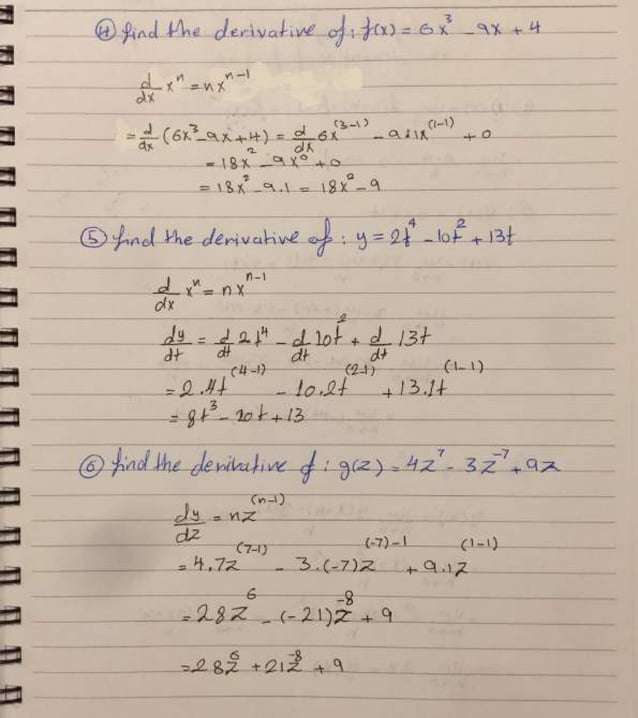 ④ find the derivative of: f(x) = 6x³ - 9x + 4
d/dx xⁿ = nxⁿ⁻¹
= d/dx (6x³ - 9x + 4) = d/dx 6x⁽³⁻¹⁾ - 9.1x⁽¹⁻¹⁾ + 0
= 18x² - 9x⁰ + 0
= 18x² - 9.1 = 18x² - 9
⑤ find the derivative of: y = 2t⁴ - 10t² + 13t
d/dx xⁿ = nxⁿ⁻¹
dy/dt = d/dt 2t⁴ - d/dt 10t² + d/dt 13t
= 2.4t⁽⁴⁻¹⁾ - 10.2t⁽²⁻¹⁾ + 13.1t⁽¹⁻¹⁾
= 8t³ - 20t + 13
⑥ find the derivative of: g(z) = 4z⁷ - 3z⁻⁷ + 9z
dy/dz = nz⁽ⁿ⁻¹⁾
= 4.7z⁽⁷⁻¹⁾ - 3.(-7)z⁽⁻⁷⁾⁻¹ + 9.1z⁽¹⁻¹⁾
= 28z⁶ - (-21)z⁻⁸ + 9
= 28z⁶ + 21z⁻⁸ + 9